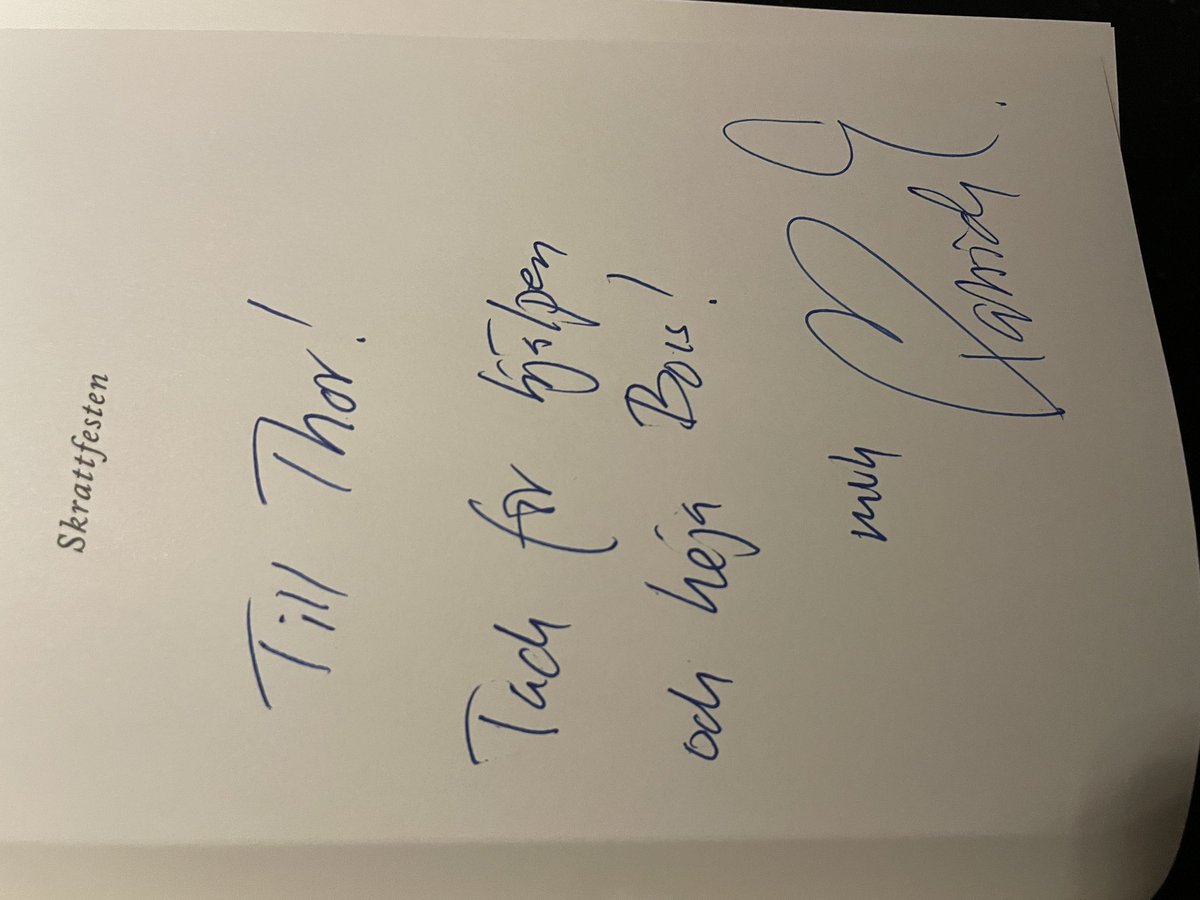 Skrattfesten
Till Thor!
Tack för hjälpen
och heja Bois!